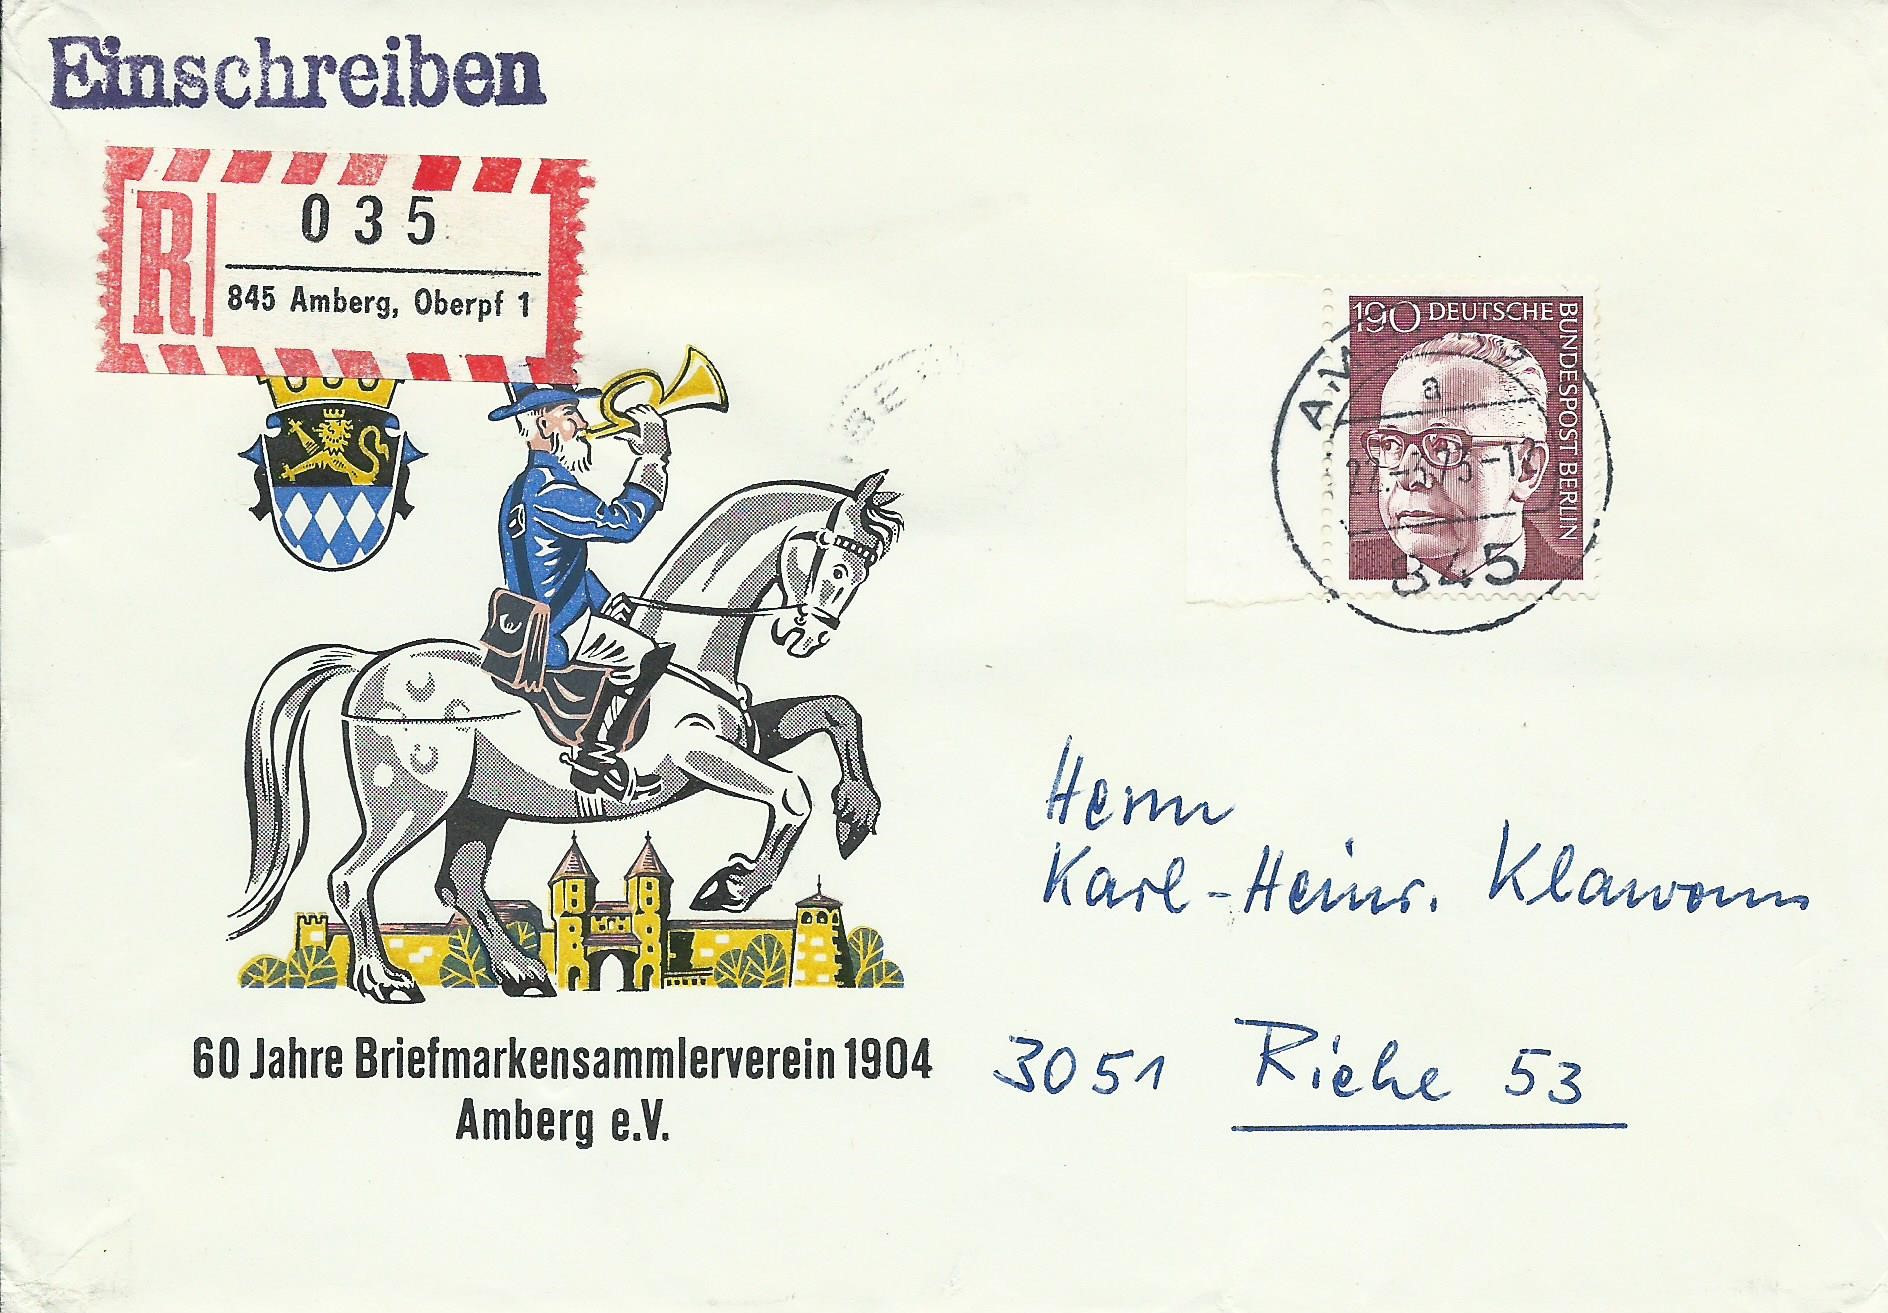 Einschreiben
R
035
845 Amberg, Oberpf 1
190 DEUTSCHE
BUNDESPOST BERLIN
a
845
Herrn
Karl-Heinz. Klawonn
3051 Riehe 53
60 Jahre Briefmarkensammlerverein 1904
Amberg e.V.